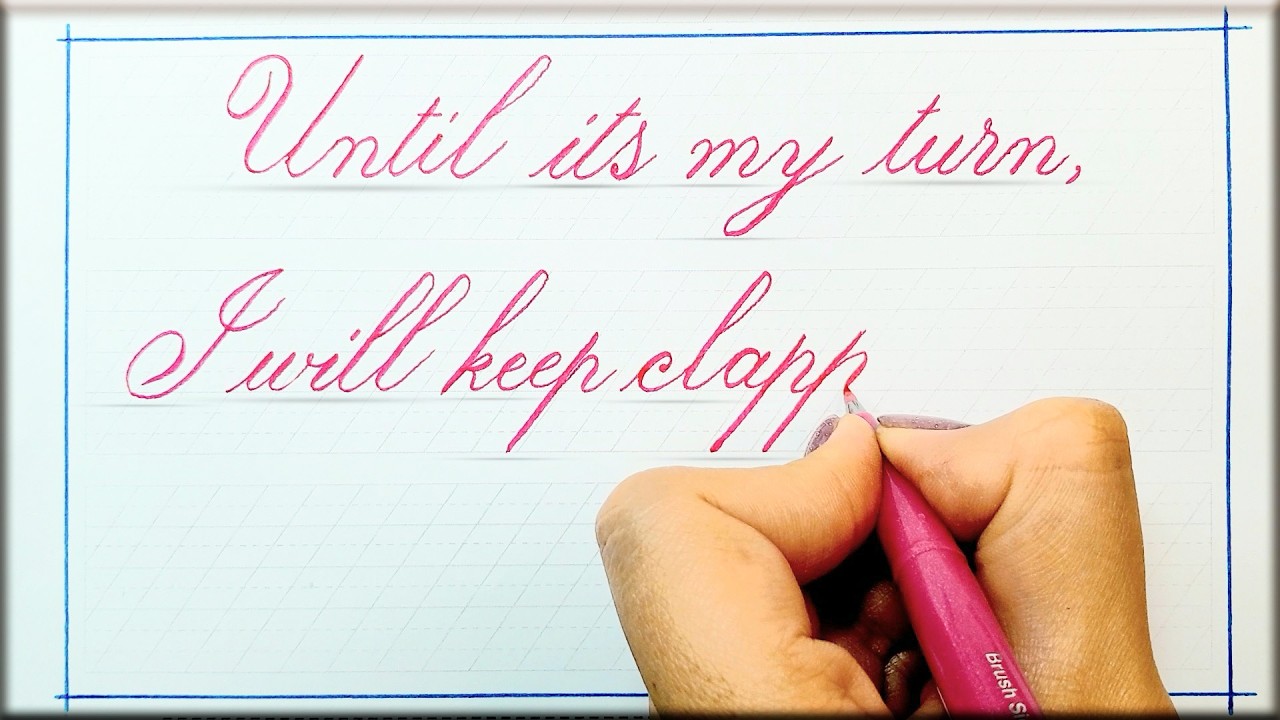 Until its my turn,
I will keep clapp
Brush Si